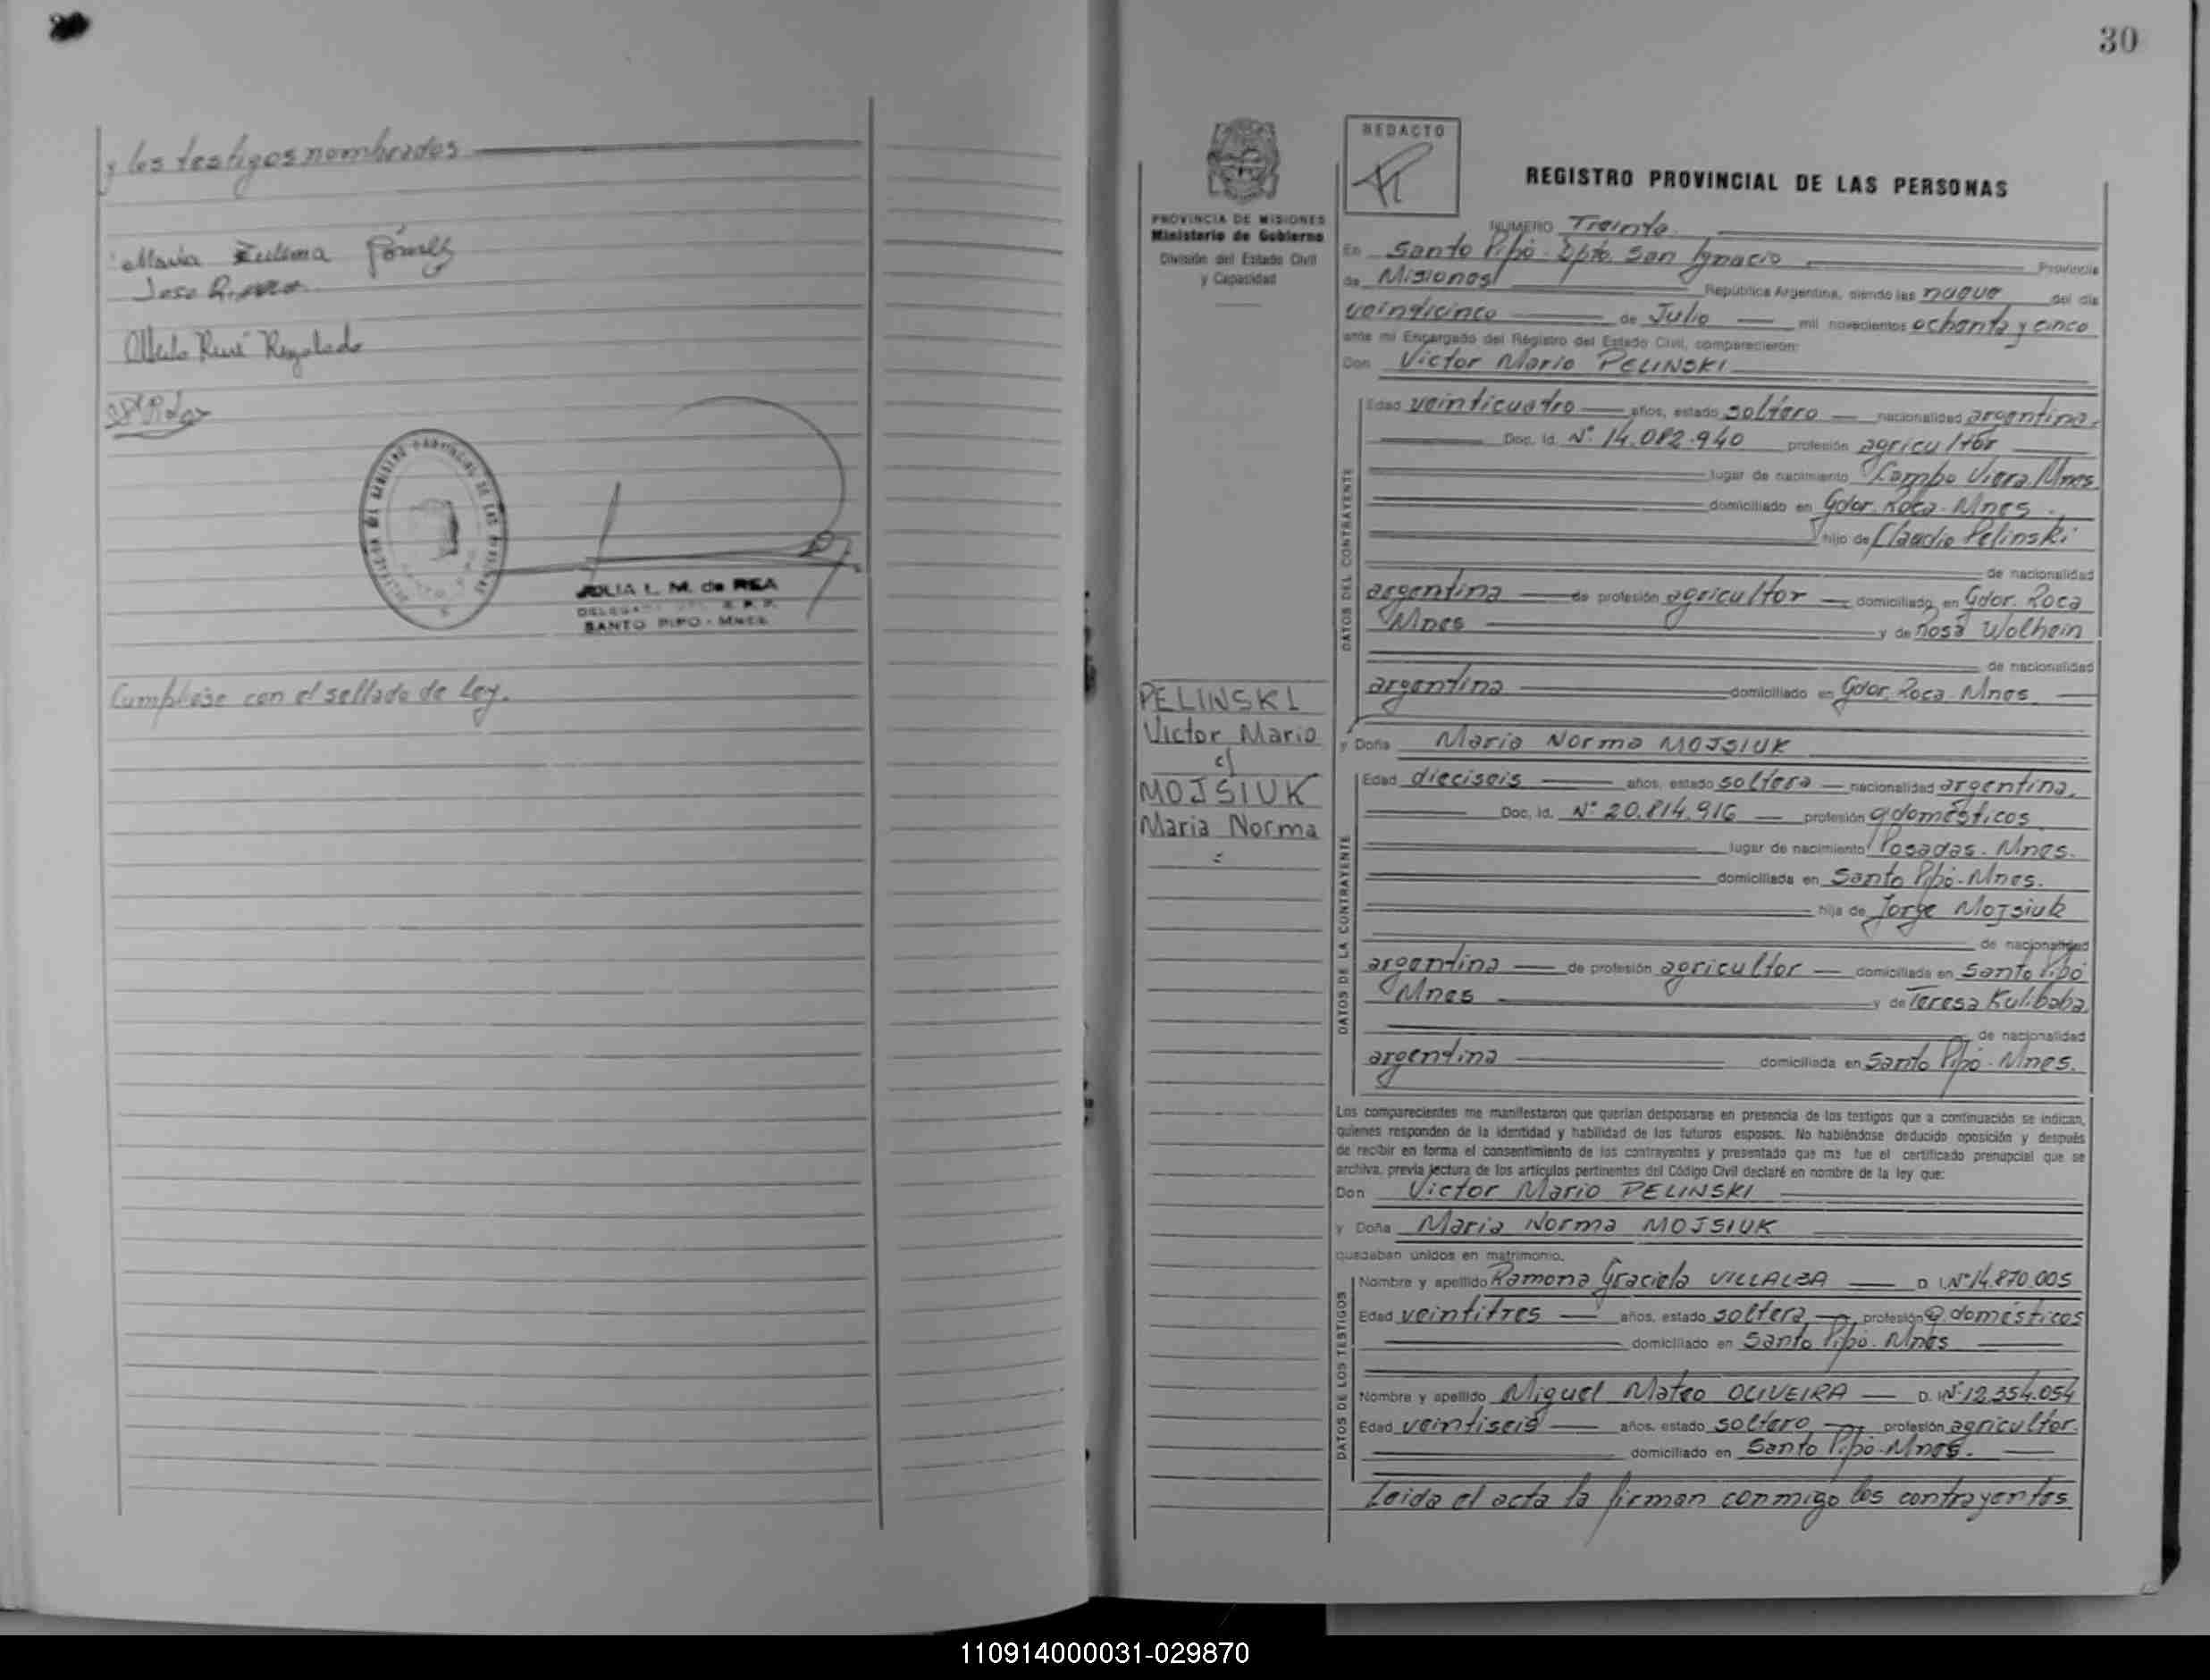 y los testigos nombrados
Maria Zulema Gómez
Jose
Alberto René Regalado
JULIA L. M. de REA
SANTO PIPO - MNES.
Cumpliose con el sellado de ley.
30
PROVINCIA DE MISIONES
Ministerio de Gobierno
División del Estado Civil
y Capacidad
REDACTO
REGISTRO PROVINCIAL DE LAS PERSONAS
NUMERO Treinta
En Santo Pipó - Dpto. San Ignacio Provincia
de Misiones República Argentina, siendo las nueve del día
veinticinco de Julio mil novecientos ochenta y cinco
ante mi Encargado del Registro del Estado Civil, comparecieron:
Don Victor Mario PELINSKI
DATOS DEL CONTRAYENTE
Edad veinticuatro años, estado soltero nacionalidad argentina.
Doc. Id. Nº 14.082.940 profesión agricultor
lugar de nacimiento Campo Viera Mnes.
domiciliado en Gdor. Roca - Mnes.
hijo de Claudio Pelinski
de nacionalidad
argentina de profesión agricultor domiciliado en Gdor. Roca
Mnes y de Rosa Wolhein
de nacionalidad
argentina domiciliado en Gdor. Roca - Mnes
PELINSKI
Victor Mario
c/
MOJSIUK
Maria Norma
y Doña Maria Norma MOJSIUK
DATOS DE LA CONTRAYENTE
Edad dieciseis años, estado soltera nacionalidad argentina.
Doc. Id. Nº 20.814.916 profesión q domésticos
lugar de nacimiento Posadas - Mnes.
domiciliada en Santo Pipó - Mnes.
hija de Jorge Mojsiuk
de nacionalidad
argentina de profesión agricultor domiciliada en Santo Pipó
Mnes y de Teresa Kulibaba
de nacionalidad
argentina domiciliada en Santo Pipó - Mnes.
Los comparecientes me manifestaron que querían desposarse en presencia de los testigos que a continuación se indican,
quienes responden de la identidad y habilidad de los futuros esposos. No habiéndose deducido oposición y después
de recibir en forma el consentimiento de los contrayentes y presentado que me fue el certificado prenupcial que se
archiva, previa lectura de los artículos pertinentes del Código Civil declaré en nombre de la ley que:
Don Victor Mario PELINSKI
y Doña Maria Norma MOJSIUK
quedaban unidos en matrimonio.
DATOS DE LOS TESTIGOS
Nombre y apellido Ramona Graciela VILLALBA D. I. Nº 14.870.005
Edad veintitres años, estado soltera profesión q domésticos
domiciliado en Santo Pipó - Mnes
Nombre y apellido Miguel Mateo OLIVEIRA D. I. Nº 12.354.054
Edad veintiseis años, estado soltero profesión agricultor.
domiciliado en Santo Pipó - Mnes.
Leida el acta la firman conmigo los contrayentes
110914000031-029870